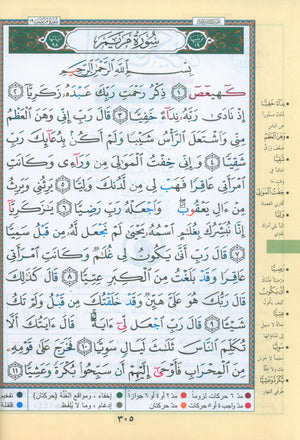 سُورَةُ مَرْيَمَ
بِسْمِ ٱللَّهِ ٱلرَّحْمَٰنِ ٱلرَّحِيمِ
كٓهيعٓصٓ ١ ذِكْرُ رَحْمَتِ رَبِّكَ عَبْدَهُۥ زَكَرِيَّآ ٢
إِذْ نَادَىٰ رَبَّهُۥ نِدَآءً خَفِيًّا ٣ قَالَ رَبِّ إِنِّي وَهَنَ ٱلْعَظْمُ
مِنِّي وَٱشْتَعَلَ ٱلرَّأْسُ شَيْبًا وَلَمْ أَكُنۢ بِدُعَآئِكَ رَبِّ
شَقِيًّا ٤ وَإِنِّي خِفْتُ ٱلْمَوَٰلِيَ مِن وَرَآءِي وَكَانَتِ
ٱمْرَأَتِي عَاقِرًا فَهَبْ لِي مِن لَّدُنكَ وَلِيًّا ٥ يَرِثُنِي وَيَرِثُ
مِنْ ءَالِ يَعْقُوبَ ۖ وَٱجْعَلْهُ رَبِّ رَضِيًّا ٦ يَٰزَكَرِيَّآ
إِنَّا نُبَشِّرُكَ بِغُلَٰمٍ ٱسْمُهُۥ يَحْيَىٰ لَمْ نَجْعَل لَّهُۥ مِن قَبْلُ سَمِيًّا
٧ قَالَ رَبِّ أَنَّىٰ يَكُونُ لِي غُلَٰمٌ وَكَانَتِ ٱمْرَأَتِي
عَاقِرًا وَقَدْ بَلَغْتُ مِنَ ٱلْكِبَرِ عِتِيًّا ٨ قَالَ كَذَٰلِكَ
قَالَ رَبُّكَ هُوَ عَلَيَّ هَيِّنٌ وَقَدْ خَلَقْتُكَ مِن قَبْلُ وَلَمْ تَكُ
شَيْئًا ٩ قَالَ رَبِّ ٱجْعَل لِّيٓ ءَايَةً ۚ قَالَ ءَايَتُكَ أَلَّا
تُكَلِّمَ ٱلنَّاسَ ثَلَٰثَ لَيَالٍ سَوِيًّا ١٠ فَخَرَجَ عَلَىٰ قَوْمِهِۦ
مِنَ ٱلْمِحْرَابِ فَأَوْحَىٰٓ إِلَيْهِمْ أَن سَبِّحُوا۟ بُكْرَةً وَعَشِيًّا ١١
نداءً خفيًّا
وهن العظم
خفت الموالي
بكرة وعشيًّا
مدّ ٦ حركات لزوماً مدّ ٢ أو ٤ أو ٦ جوازاً إخفاء، ومواقع الغنّة (حركتان) تفخيم
مدّ واجب ٤ أو ٥ حركات مدّ حركتان إدغام، وما لا يُلفظ قلقلة
٣٠٥